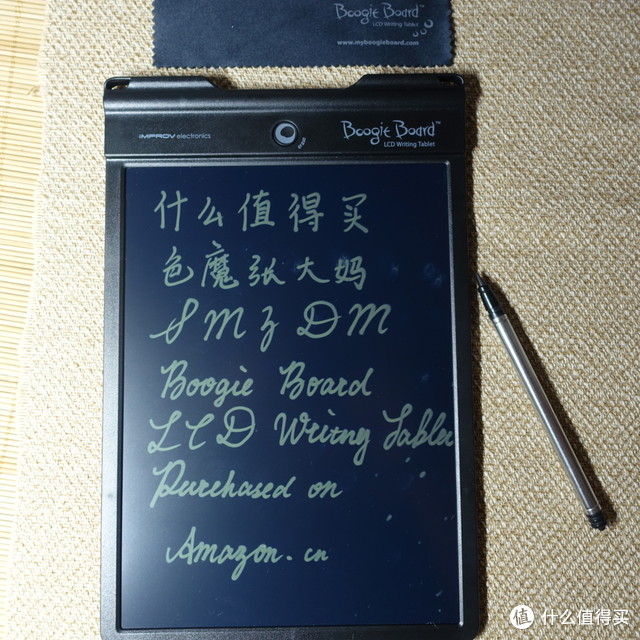 Boogie Board™
LCD Writing Tablet
www.myboogieboard.com
IMPROV electronics
Boogie Board™
LCD Writing Tablet
什么值得买
色魔张大妈
SMZDM
Boogie Board
LCD Writng Table
Purchased on
Amazon.cn
值 什么值得买